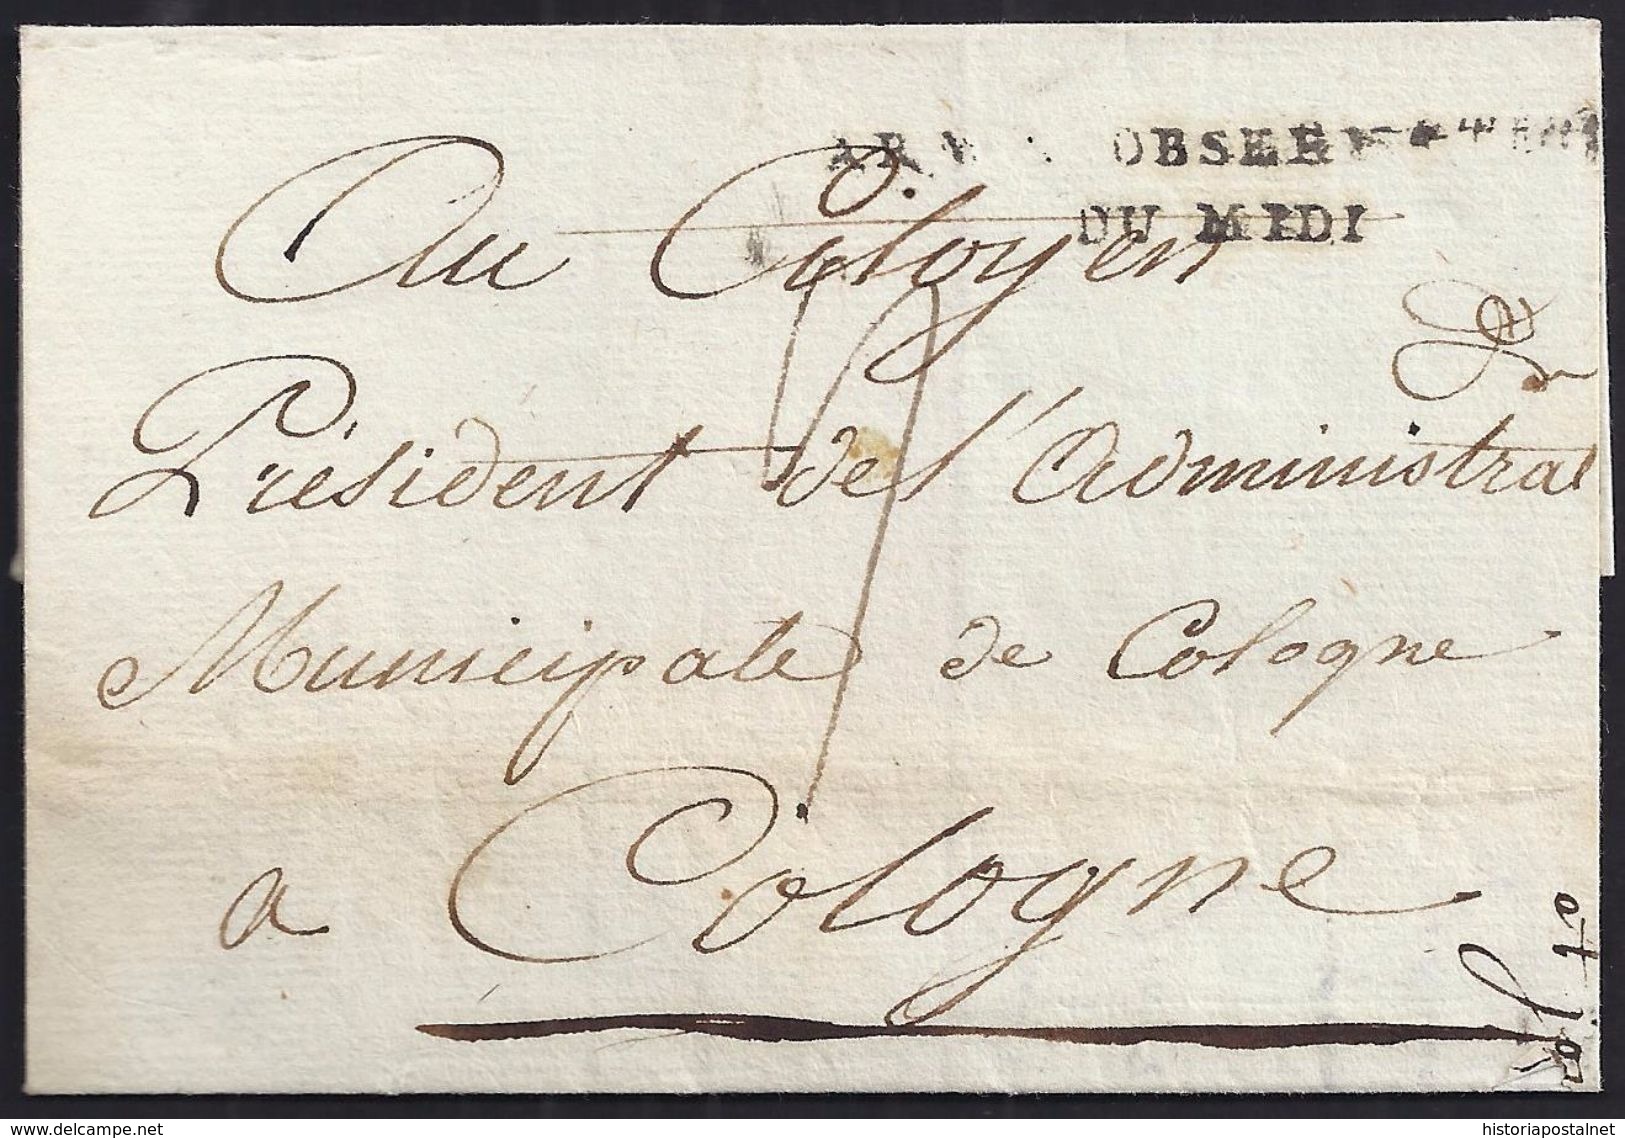 OBSER
DU MIDI
Au Citoyen
Président de l'Administrat
Municipale de Cologne
a Cologne
www.delcampe.net
historiapostalnet